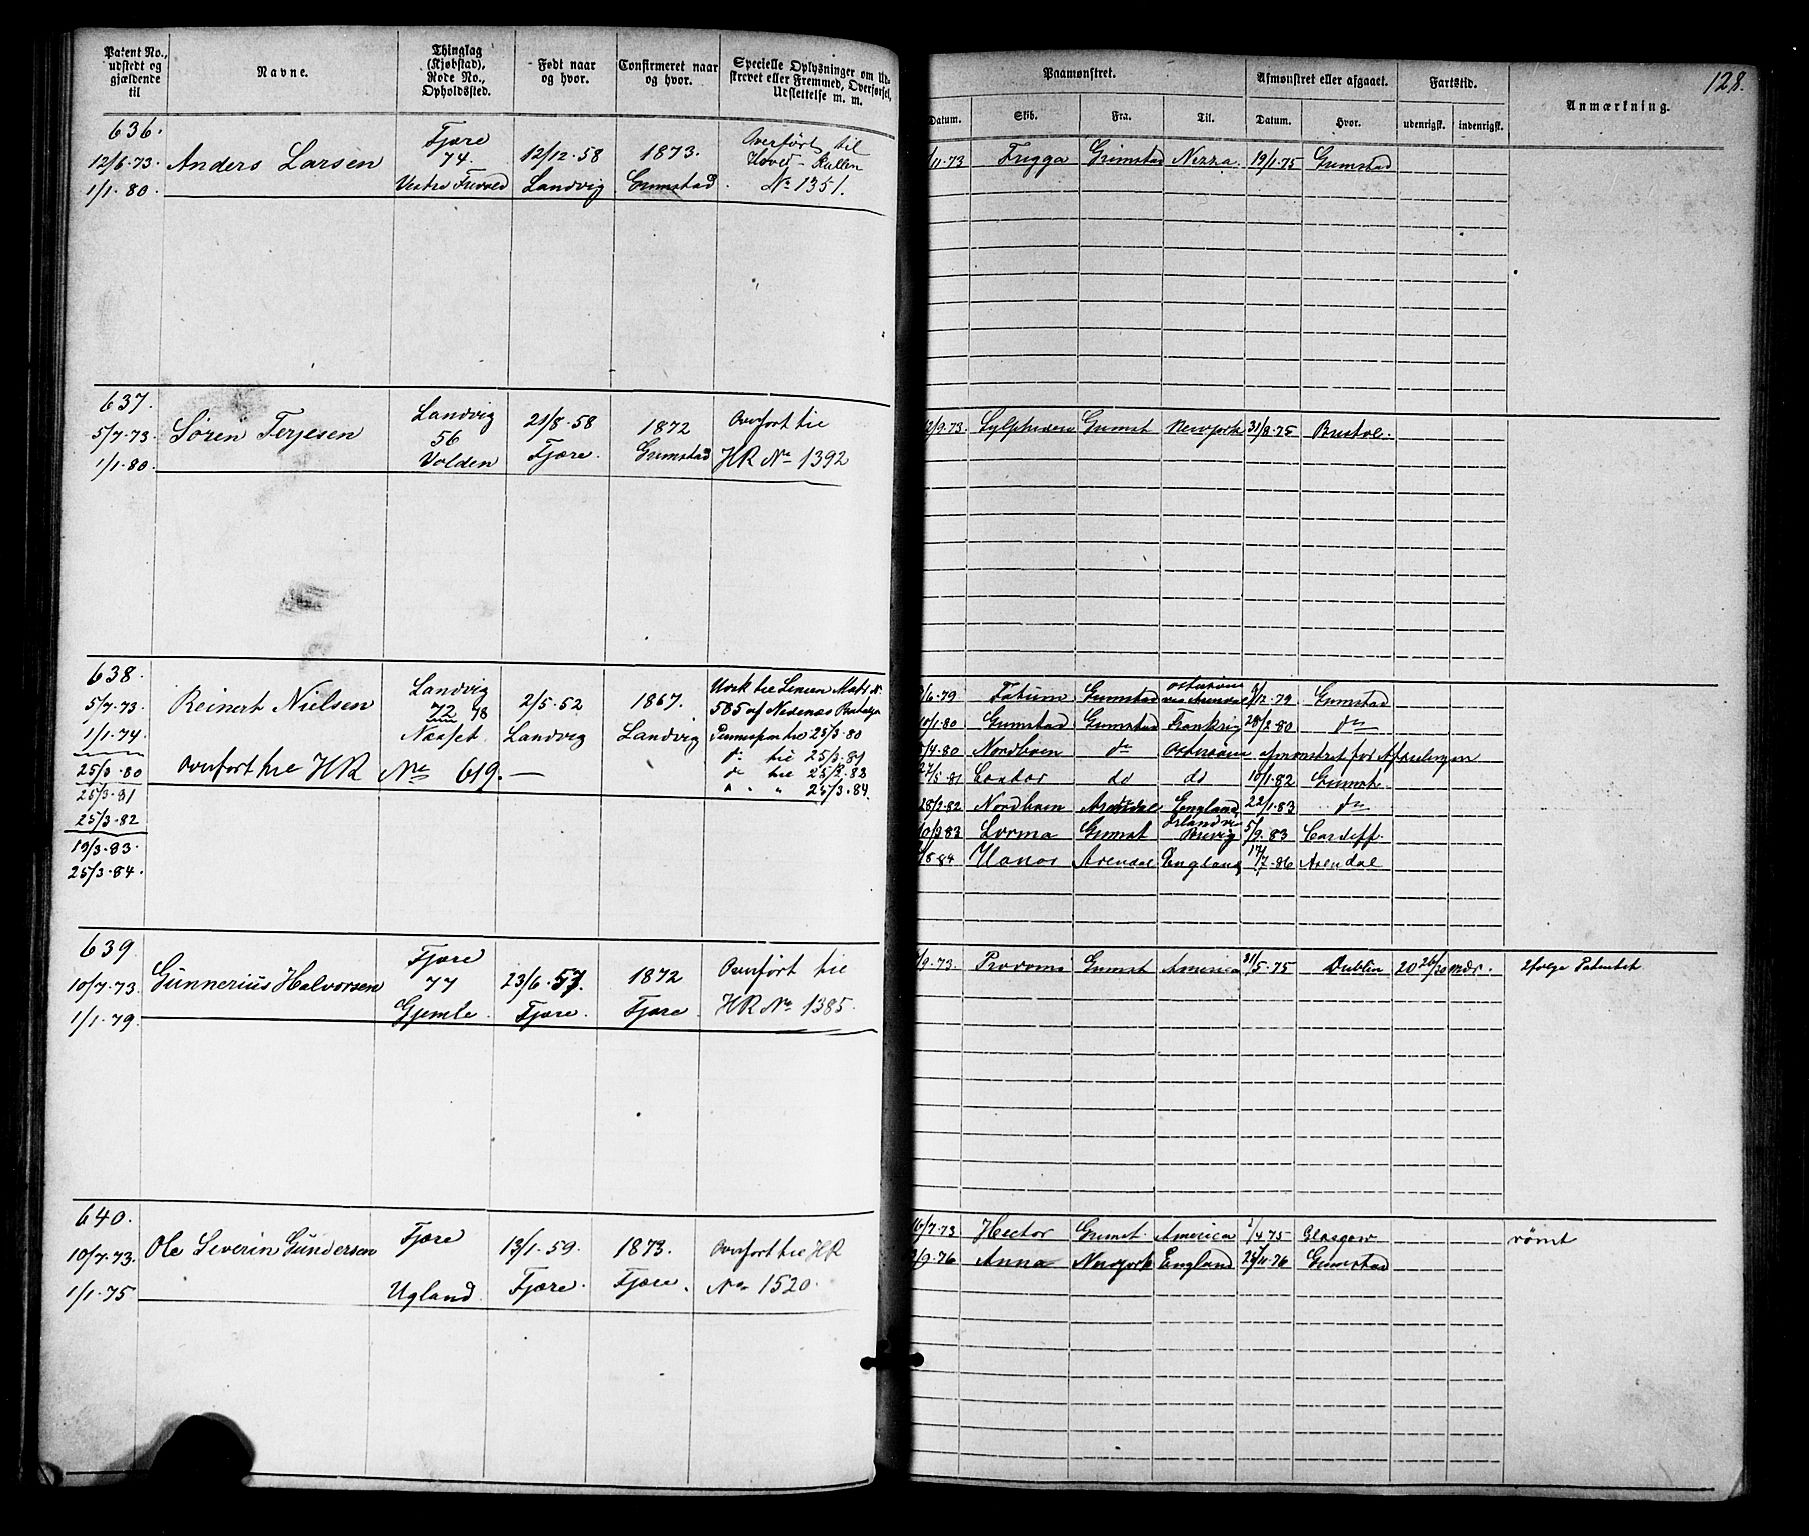 128.
Patent No., udstedt og gjældende til
Navne.
Thinglag (Kjøbstad), Rode No., Opholdssted.
Født naar og hvor.
Confirmeret naar og hvor.
Specielle Oplysninger om Udskrevet eller Fremmed, Overførsel, Udslettelse m. m.
Paamønstret.
Datum. Skib. Fra. Til.
Afmønstret eller afgaaet.
Datum. Hvor.
Fartstid.
udenrigsk. indenrigsk.
Anmærkning.
636.
12/6.73
1/1.80.
Anders Larsen
Fjære
74.
12/12.58
Landvig
1873.
Grimstad.
Overført til
Hoved-Rullen
No 1351.
/11.73 Frigga Grimstad Nizza. 19/1.75 Grimstad
637.
5/7.73
1/1.80.
Sören Terjesen
Landvig
56
Volden
21/8.58
Fjære.
1872
Grimstad
Overført til
HR No 1392
2/9.73. Sylphiden Grimst Newyork 31/8.75 Bristol.
638.
5/7.73.
1/1.74
25/3.80
25/3.81
25/3.82
19/3.83.
25/3.84.
Reinert Nielsen
Landvig
72 48
Næsset.
2/5.52
Landvig
1867.
Landvig
585 af Nedenæs
25/3.80
do til 25/3.81
do til 25/2.83
" " " 25/3.84.
Overført til HR No 619.
/6.79 Fatum Grimstad Østersøen via Arendal /12.79 Grimstad
10/1.80 Grimstad Grimstad Frankrig 28/2.80 do
5/4.80 Nordhavn do Østersøen afmønstret før Afseilingen
27/5.81 Condor do do 10/1.82 Grimst.
28/2.82 Nordhavn Arendal England 22/1.83 do
10/3.83 Lorma Grimst Island via Brevig 5/9.83 Cardiff.
/8.84 Honor Arendal England 17/7.86 Arendal
639
10/7.73
1/1.79.
Gunnerius Halvorsen
Fjære
77
Gjemle.
23/6.57.
Fjære.
1872
Fjære
Overført til
HR No 1385.
/9.73. Grimst America 31/5.75 Dublin 20 26/30 Mdr. Ifølge Patentet
640.
10/7.73.
1/1.75
Ole Severin Gundersen
Fjære
Ugland.
13/1.59.
Fjære.
1873.
Fjære.
Overført til HR
No 1520.
16/7.73 Hector Grimst. America /4.75 Glasgow rømt
/9.76 Anna Newyork England 24/11.76 Grimstad